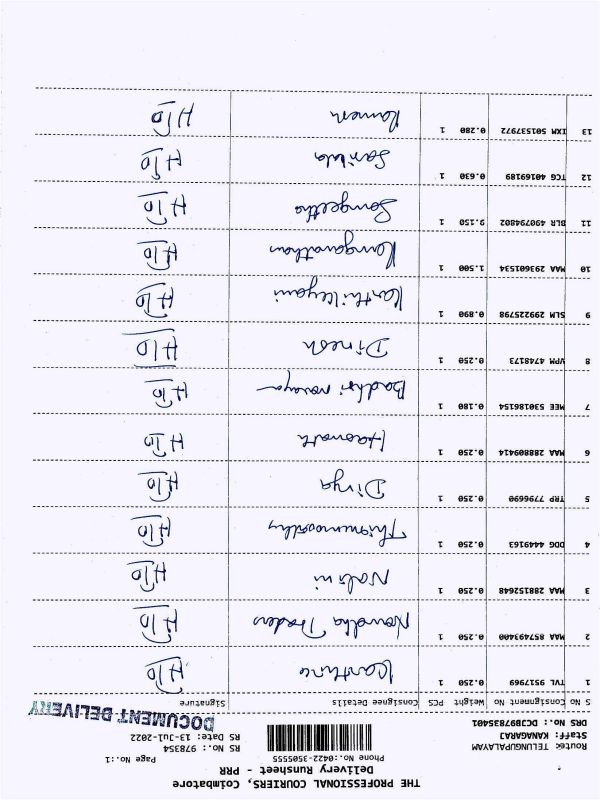 THE PROFESSIONAL COURIERS, Coimbatore
Delivery Runsheet - PRR
Phone No.:0422-3505555
Page No.:1
Route: TELUNGUPALAYAM
Staff: KANAGARAJ
DRS No.: DCJB97835401
RS No.: 978354
RS Date: 13-Jul-2022
DOCUMENT DELIVERY
S No Consignment No Weight PCS Consignee Details Signature
1 TVL 9517969 0.250 1 Karthik H/o
2 MAA 857493400 0.250 1 Traders H/o
3 MAA 288152648 0.250 1 Nalini H/o
4 DDG 4449163 0.250 1 H/o
5 TRP 7796690 0.250 1 Divya H/o
6 MAA 288809414 0.250 1 H/o
7 MEE 530186154 0.180 1 Badhri H/o
8 VPM 4748173 0.250 1 Dinesh H/o
9 SLM 299225798 0.890 1 Karthikeyani H/o
10 MAA 293601534 1.500 1 H/o
11 BLR 490794802 9.150 1 Sangeetha H/o
12 TCG 40169189 0.630 1 Sarita H/o
13 IXM 501537972 0.280 1 Ramesh H/o